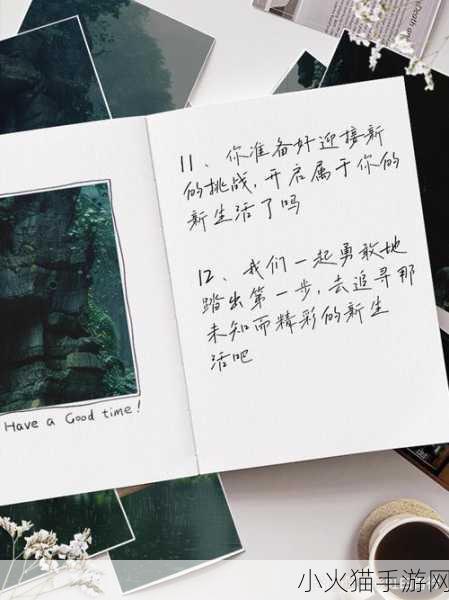 11、你准备好迎接新
的挑战，开启属于你的
新生活了吗
12、我们一起勇敢地
踏出第一步，去追寻那
未知而精彩的新生
活吧
Have a Good time!
小火猫手游网